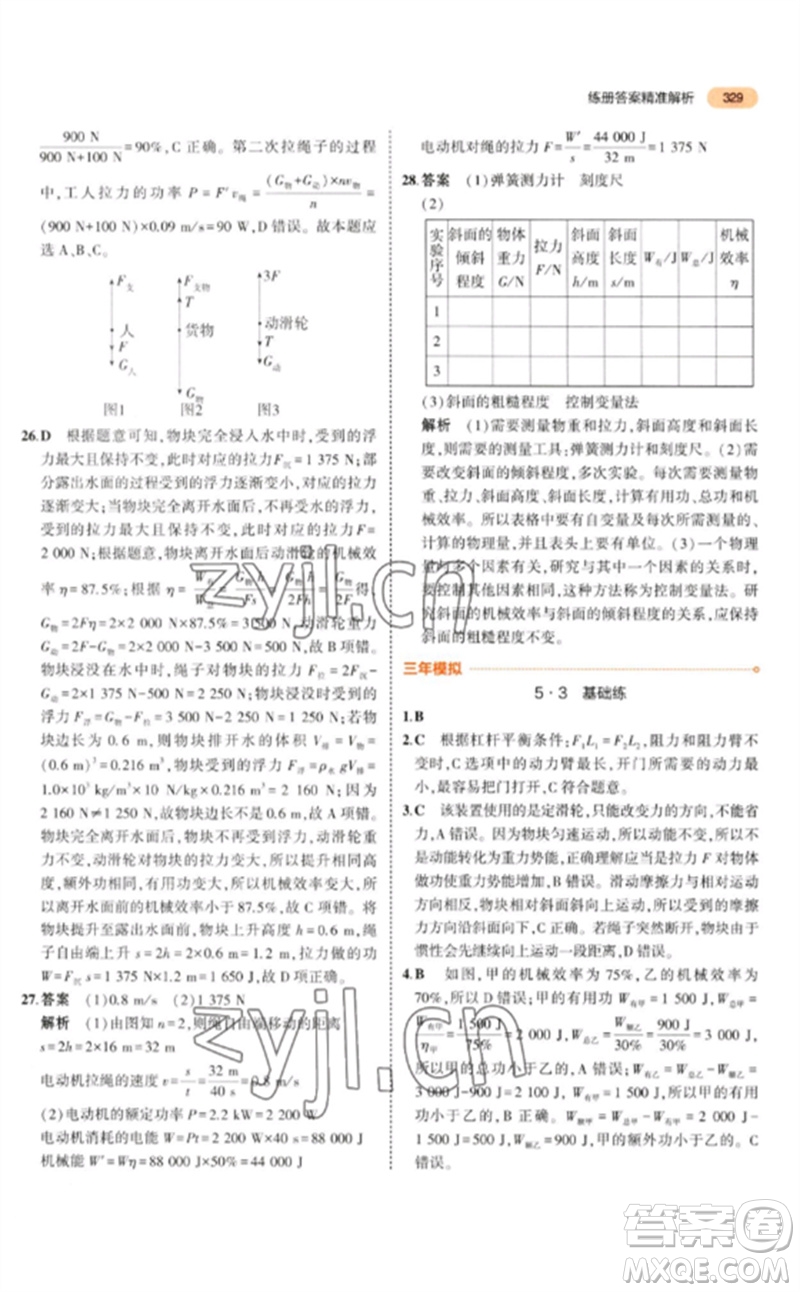 练册答案精准解析 329
900 N/(900 N+100 N)=90%,C 正确。第二次拉绳子的过程
中,工人拉力的功率 P=F′v绳=(G物+G动)×nv物/n=
(900 N+100 N)×0.09 m/s=90 W,D 错误。故本题应
选 A、B、C。
F支 F支物 3F
T
人 货物 动滑轮
F T
G人 G动
G物
图1 图2 图3
26.D 根据题意可知,物块完全浸入水中时,受到的浮
力最大且保持不变,对应的拉力F沉=1 375 N;部
分露出水面的过程受到的浮力逐渐变小,对应的拉力
逐渐变大;当物块完全离开水面后,不再受水的浮力,
受到的拉力最大且保持不变,对应的拉力 F=
2 000 N,物块完全离开水面后动滑轮的机械效
率 η=87.5%;根据 η=W有/W总=G物h/Fs=G物h/2Fh=G物/2F得,
G物=2Fη=2×2 000 N×87.5%=3 500 N,动滑轮重力
G动=2F-G物=2×2 000 N-3 500 N=500 N,故 B 项错。
物块浸没在水中时,绳子对物块的拉力 F拉=2F沉-
G动=2×1 375 N-500 N=2 250 N;物块浸没时受到的
浮力 F浮=G物-F拉=3 500 N-2 250 N=1 250 N;若
物块边长为 0.6 m,则物块排开水的体积 V排=V物=
(0.6 m)³=0.216 m³,物块受到的浮力 F浮=ρ水gV排=
1.0×10³ kg/m³×10 N/kg×0.216 m³=2 160 N。因为
2 160 N≠1 250 N,故物块边长不是 0.6 m,故 A 项错。
物块完全离开水面后,物块不再受到浮力,动滑轮重
力不变,动滑轮对物块的拉力变大,有用功变大,提升
高度、额外功相同,有用功变大,所以机械效率变大,
所以离开水面前,机械效率小于 87.5%,故 C 项错。将
物块提升至露出水面前,物块升高高度 h=0.6 m,绳
子自由端上升 s=2h=2×0.6 m=1.2 m,拉力做的功
W=F沉s=1 375 N×1.2 m=1 650 J,故 D 项正确。
27.答案 (1)0.8 m/s (2)1 375 N
解析 (1)由图知 n=2,则绳自由端移动的距离
s=2h=2×16 m=32 m
电动机拉绳的速度 v=s/t=32 m/40 s=0.8 m/s
(2)电动机的额定功率 P=2.2 kW=2 200 W
电动机消耗的电能 W=Pt=2 200 W×40 s=88 000 J
机械能 W′=Wη=88 000 J×50%=44 000 J
电动机对绳的拉力 F=W′/s=44 000 J/32 m=1 375 N
28.答案 (1)弹簧测力计 刻度尺
(2)
实验序号 斜面的倾斜程度 物体重力G/N 拉力F/N 斜面高度h/m 斜面长度s/m W有/J W总/J 机械效率η
1
2
3
(3)斜面的粗糙程度 控制变量法
解析 (1)需要测量物重和拉力,斜面高度和斜面长
度,所以需要的测量工具:弹簧测力计和刻度尺。(2)需
要改变斜面的倾斜程度,多次实验。每次需要测量物
重、拉力、斜面高、斜面长,计算出有用功、总功和机
械效率。所以表格中要有倾斜程度以及需要测量的、
计算的物理量,并且需要有次数。(3)一个物理
量与多个因素有关,研究与其中一个因素的关系时,
要控制其他因素不变,这种方法称为控制变量法。研
究斜面的机械效率与斜面倾斜程度的关系,应保持
斜面的粗糙程度不变。
三年模拟
5·3 基础练
1.B
2.C 根据杠杆平衡条件:F₁L₁=F₂L₂,阻力和阻力臂不
变时,C 选项中的动力臂最长,开门所需要的动力最
小,最容易把门打开。C 符合题意。
3.C 该装置使用的是定滑轮,只能改变力的方向,不能省
力,A 错误。因为物块匀速运动,所以动能不变,所以不
是动能转化为重力势能,正确理解应当是拉力 F 对物体
做功使机械能变大,B 错误。滑动摩擦力与相对运动
方向相反,物块相对斜面斜向上运动,所以摩擦力的
方向沿斜面向下,C 正确。F 突然断开时,物块由于
惯性会先继续向上运动,D 错误。
4.B 如图,甲的机械效率为 75%,乙的机械效率为
70%,所以 D 错误;甲的有用功 W有甲=1 500 J,W总甲=
W有甲/η甲=1 500 J/75%=2 000 J,W总乙=W额乙/30%=900 J/30%=3 000 J,
所以甲的总功小于乙的总功。A 错误;W有乙=W总乙-W额乙=
3 000 J-900 J=2 100 J,所以甲的有用功小于乙的有
用功。B 正确;W额甲=W总甲-W有甲=2 000 J-
1 500 J=500 J,甲的额外功小于乙的额外功。C
错误。
zyjl.cn
zyjl.cn
答案圈
MXQE.COM